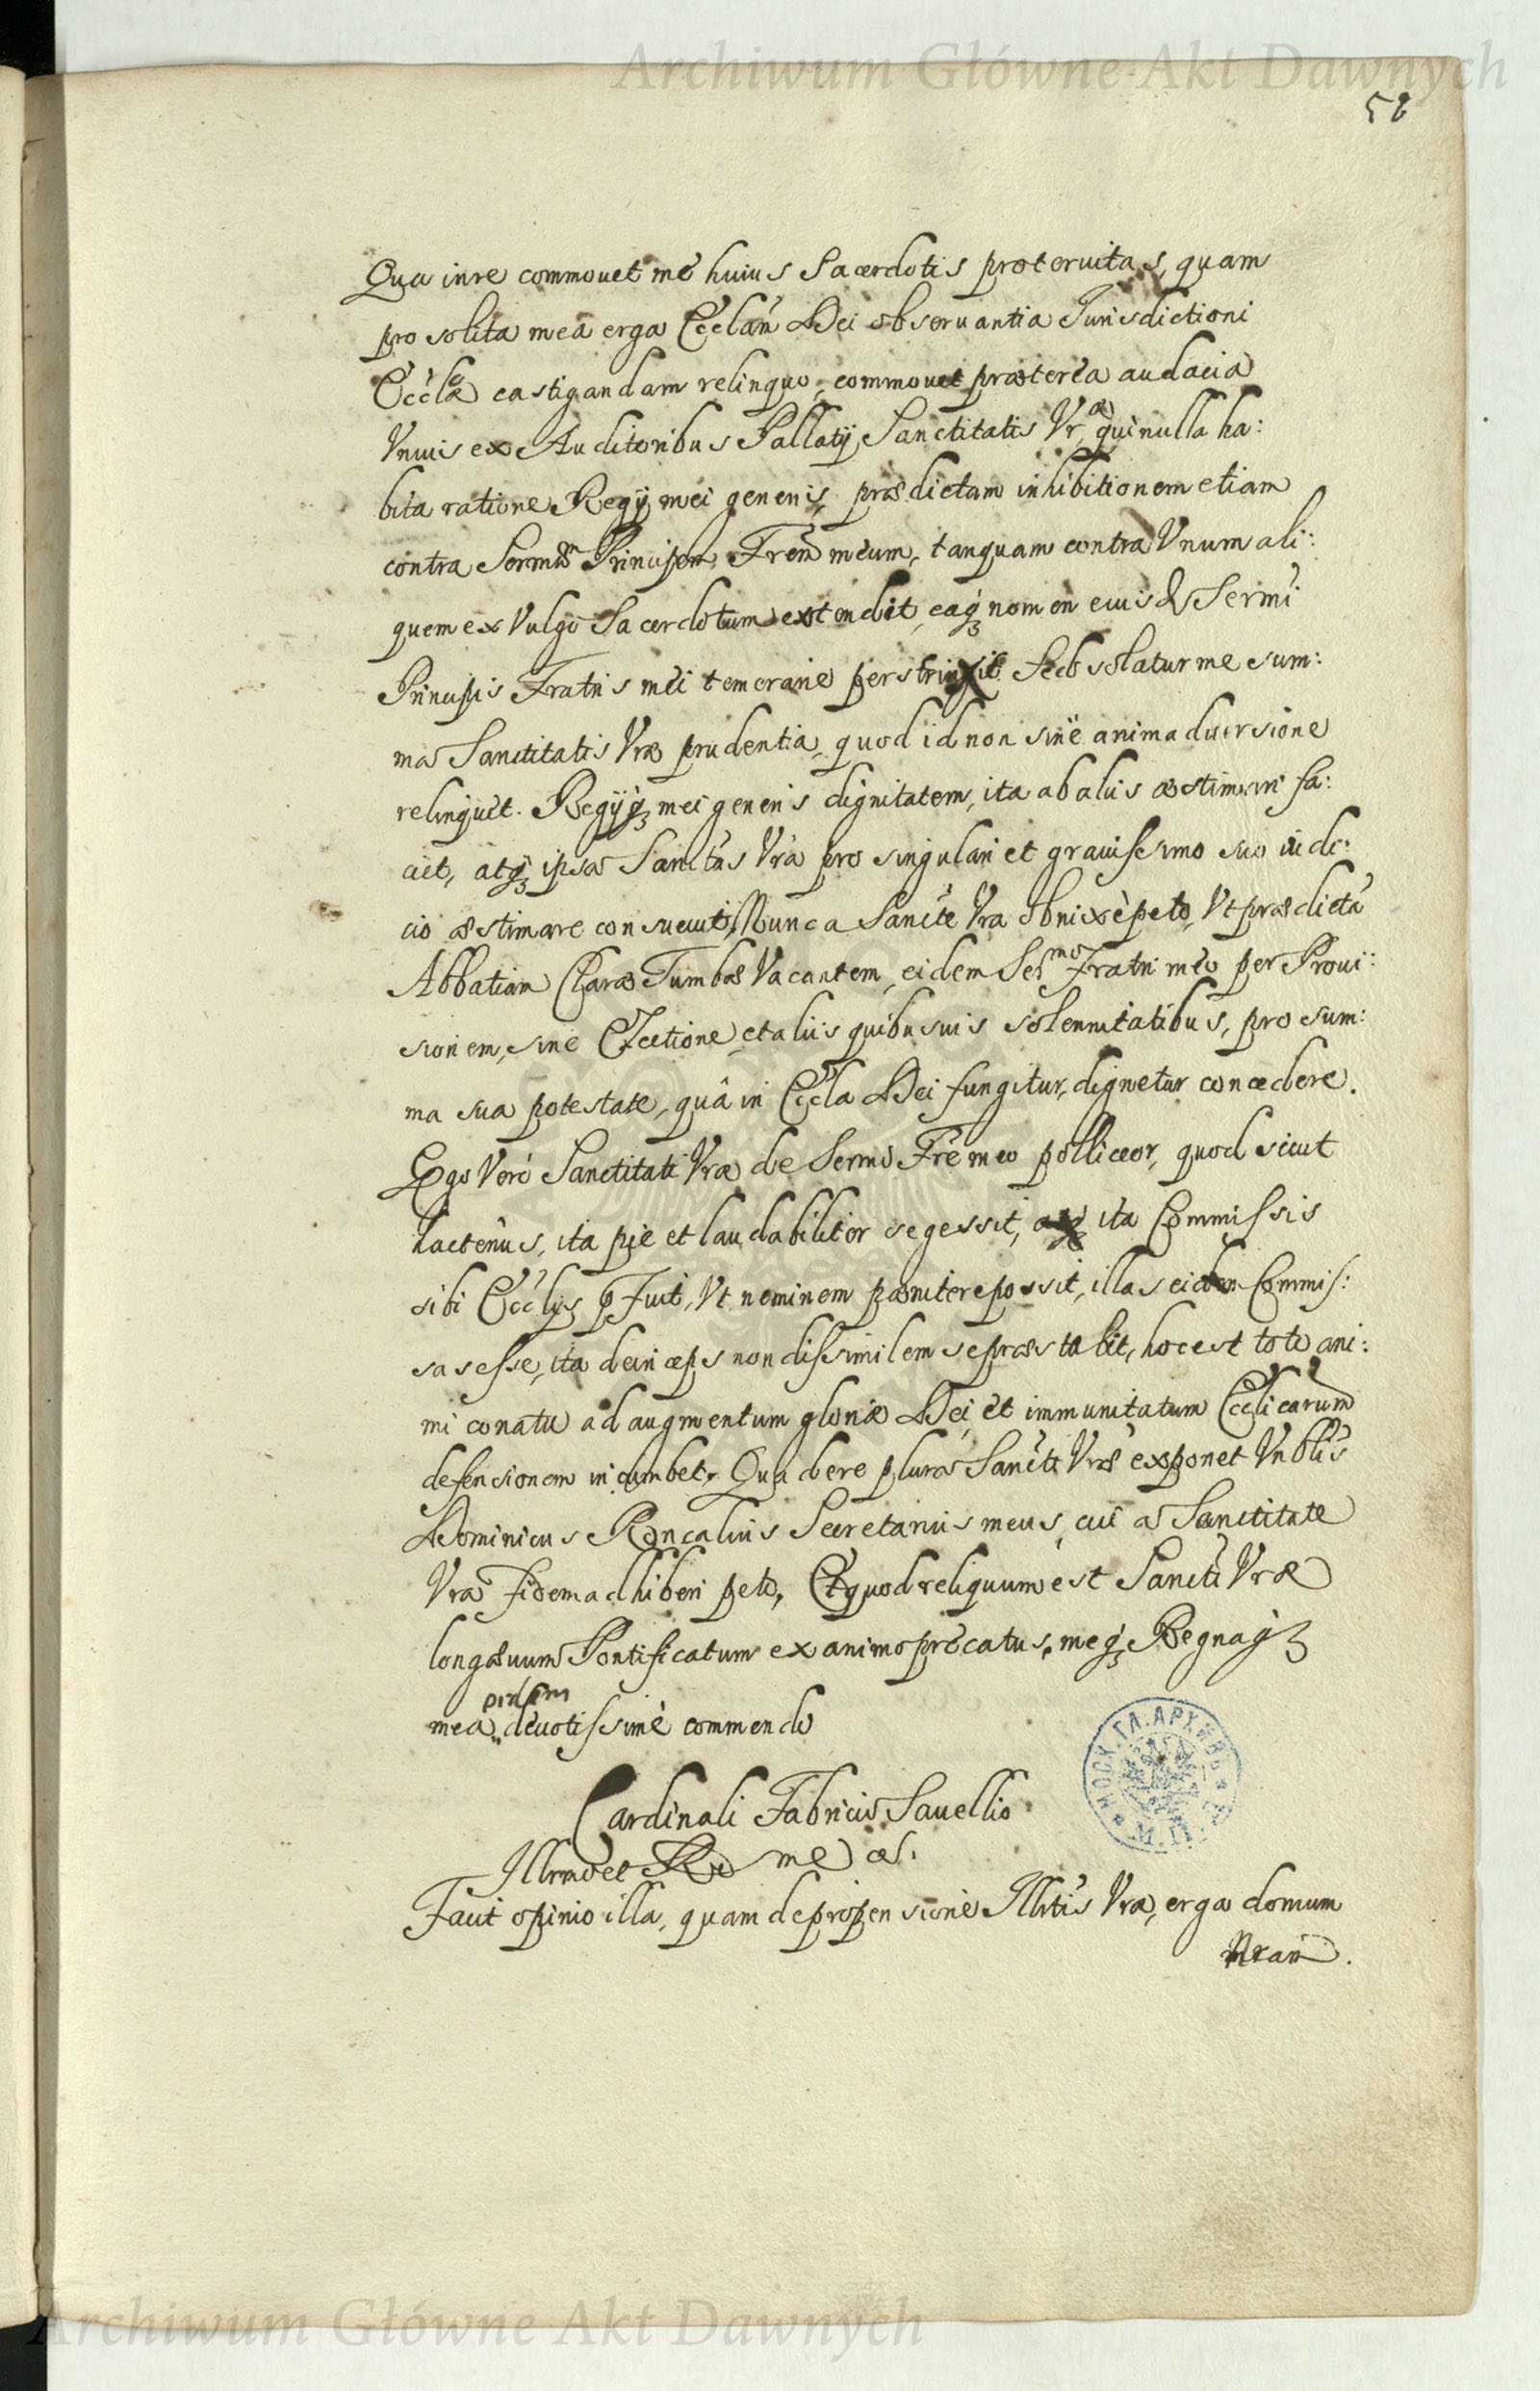 Archiwum Główne Akt Dawnych
58
Qua in re commouet me huius Sacerdotis proteruitas, quam
pro solita mea erga Ecclam Dei obseruantia Jurisdictioni
Eccłæ castigandam relinquo, commouet præterea audacia
Vnius ex Auditoribus Pallatij Sanctitatis Vræ, qui nulla ha:
bita ratione Regij mei generis, prædictam inhibitionem etiam
contra Sermũ Principem Frem meum, tanquam contra Vnum ali:
quem ex Vulgo Sacerdotum extendit, eaq; nomen eiusd Sermi
Principis Fratris mei temerarie perstrinxit. Sed solatur me sum:
ma Sanctitatis Vræ prudentia, quod id non sine animaduersione
relinquet. Regijq; mei generis dignitatem, ita ab alijs æstimari fa:
ciet, atq; ipsa Sanctas Vra pro singulari et grauissimo suo iudi:
cio æstimare consueuit. Nunc a Sancte Vra obnixè peto, Vt prædictã
Abbatiam Claræ Tumbæ Vacantem, eidem Sermo Fratri meo per Proui:
sionem, sine Electione, et alijs quibusuis solennitatibus, pro sum:
ma sua potestate, quâ in Eccla Dei fungitur, dignetur concedere.
Ego Verò Sanctitati Vræ de Sermo Fre meo polliceor, quod sicut
hactenus, ita pie et laudabiliter se gessit, ita Commissis
sibi Ecclijs pfuit, Vt neminem pænitere possit, illas eidem Commis:
sas esse, ita deinceps non dissimilem se præstabit, hoc est toto ani:
mi conatu ad augmentum gloriæ Dei, et immunitatum Ecclicarum
defensionem incumbet. Qua de re plura Sancti Vræ exponet Vnblis
Dominicus Roncalius Secretarius meus, cui a Sanctitate
Vra Fidem adhiberi peto, Et quod reliquum est Sancti Vræ
longæuum Pontificatum ex animo precatus, meq; Regnaq;
mea deuotissimè commendo
Cardinali Fabricio Sauellio
Illrmo et Re me
Facit opinio illa, quam de propensione Illrtis Vræ, erga domum
nram.
МОСК. ГЛ. АРХИВЪ
Archiwum Główne Akt Dawnych